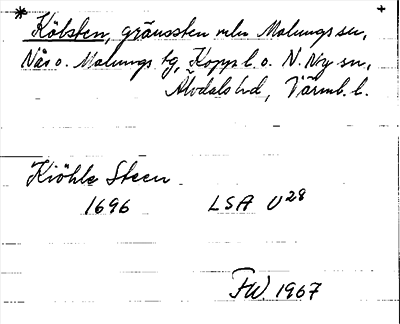 * Kölsten, gränssten mln Malungs sn, +
Nås o. Malungs tg, Kopp. l. o. N. Ny sn,
Älvdals hd, Värml. l.
Kiöhls Steen
1696 LSA U28
FW. 1967